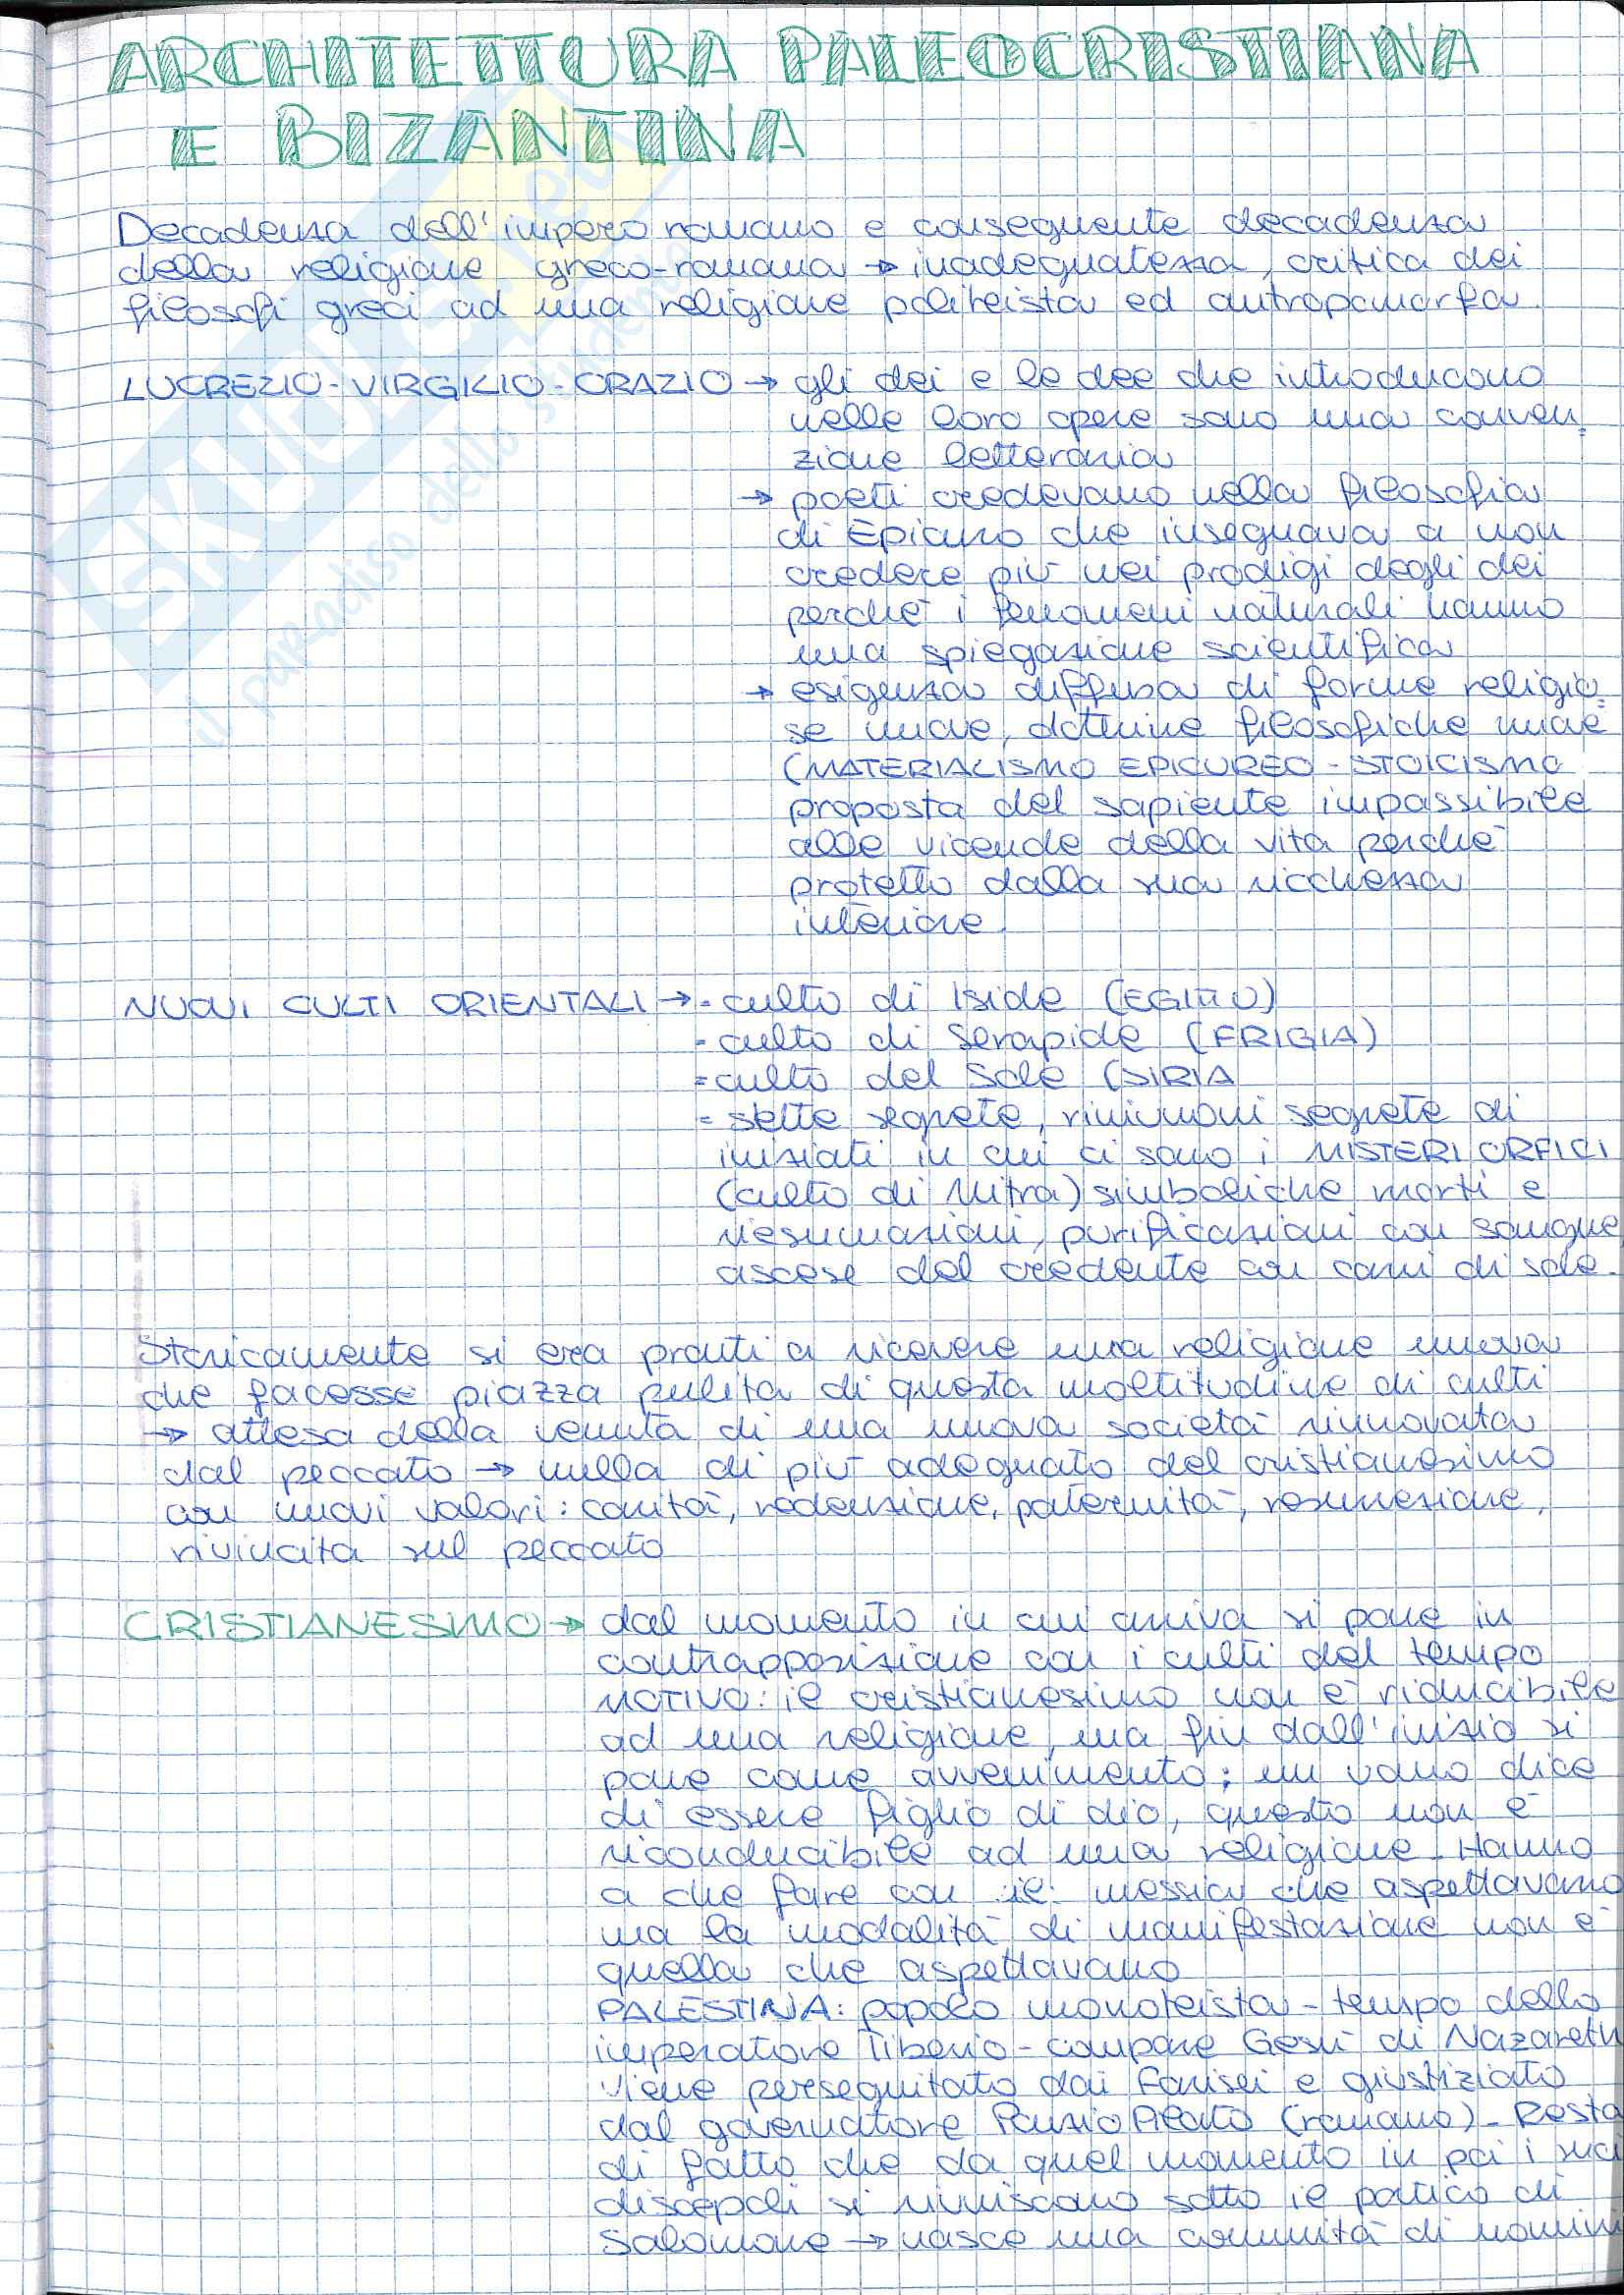 ARCHITETTURA PALEOCRISTIANA
E BIZANTINA
Decadenza dell'impero romano e conseguente decadenza
della religione greco-romana → inadeguatezza, critica dei
filosofi greci ad una religione politeista ed antropomorfa.
LUCREZIO - VIRGILIO - ORAZIO → gli dei e le dee che introducono
nelle loro opere sono una conven
zione letteraria
→ poeti credevano nella filosofia
di Epicuro che insegnava a non
credere più nei prodigi degli dei
perchè i fenomeni naturali hanno
una spiegazione scientifica
→ esigenza diffusa di forme religio
se nuove, dottrine filosofiche nuove
(MATERIALISMO EPICUREO - STOICISMO
proposta del sapiente impassibile
alle vicende della vita perchè
protetto dalla sua ricchezza
interiore
NUOVI CULTI ORIENTALI → - culto di Iside (EGITTO)
- culto di Serapide (FRIGIA)
- culto del Sole (SIRIA
- sette segrete, riunioni segrete di
iniziati in cui ci sono i MISTERI ORFICI
(culto di Mitra) simboliche morti e
riesumazioni, purificazioni con sangue
ascese del credente con carri di sole.
Storicamente si era pronti a ricevere una religione nuova
che facesse piazza pulita di questa moltitudine di culti
→ attesa della venuta di una nuova società rinnovata
dal peccato → nulla di più adeguato del cristianesimo
con nuovi valori: carità, redenzione, paternità, resurrezione,
rivincita sul peccato
CRISTIANESIMO → dal momento in cui arriva si pone in
contrapposizione con i culti del tempo
MOTIVO: il cristianesimo non è riducibile
ad una religione, ma fin dall'inizio si
pone come avvenimento; un uomo dice
di essere figlio di dio, questo non è
riconducibile ad una religione. Hanno
a che fare con il messia che aspettavano
ma la modalità di manifestazione non è
quella che aspettavano
PALESTINA: popolo monoteista - tempo dello
imperatore Tiberio - compare Gesù di Nazareth
viene perseguitato dai Farisei e giustiziato
dal governatore Ponzio Pilato (romano) - Resta
di fatto che da quel momento in poi i suoi
discepoli si riuniscono sotto il portico di
Salomone → nasce una comunità di uomini
skuola.net
il paradiso dello studente